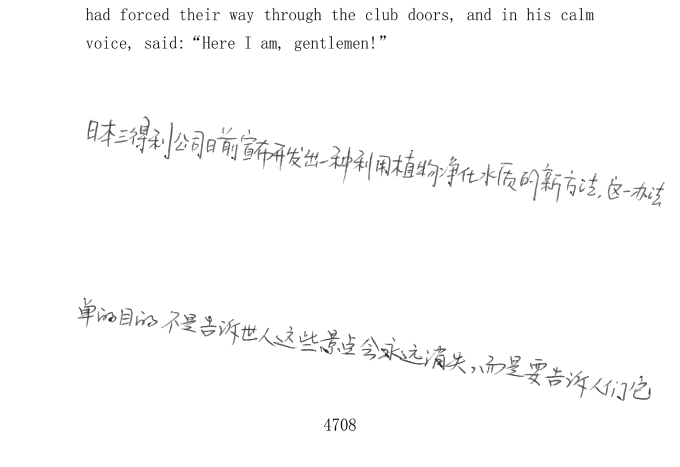 had forced their way through the club doors, and in his calm
voice, said: “Here I am, gentlemen!”
日本三得利公司日前宣布开发出一种利用植物净化水质的新方法,这一办法
单的目的不是告诉世人这些景点会永远消失,而是要告诉人们它
4708